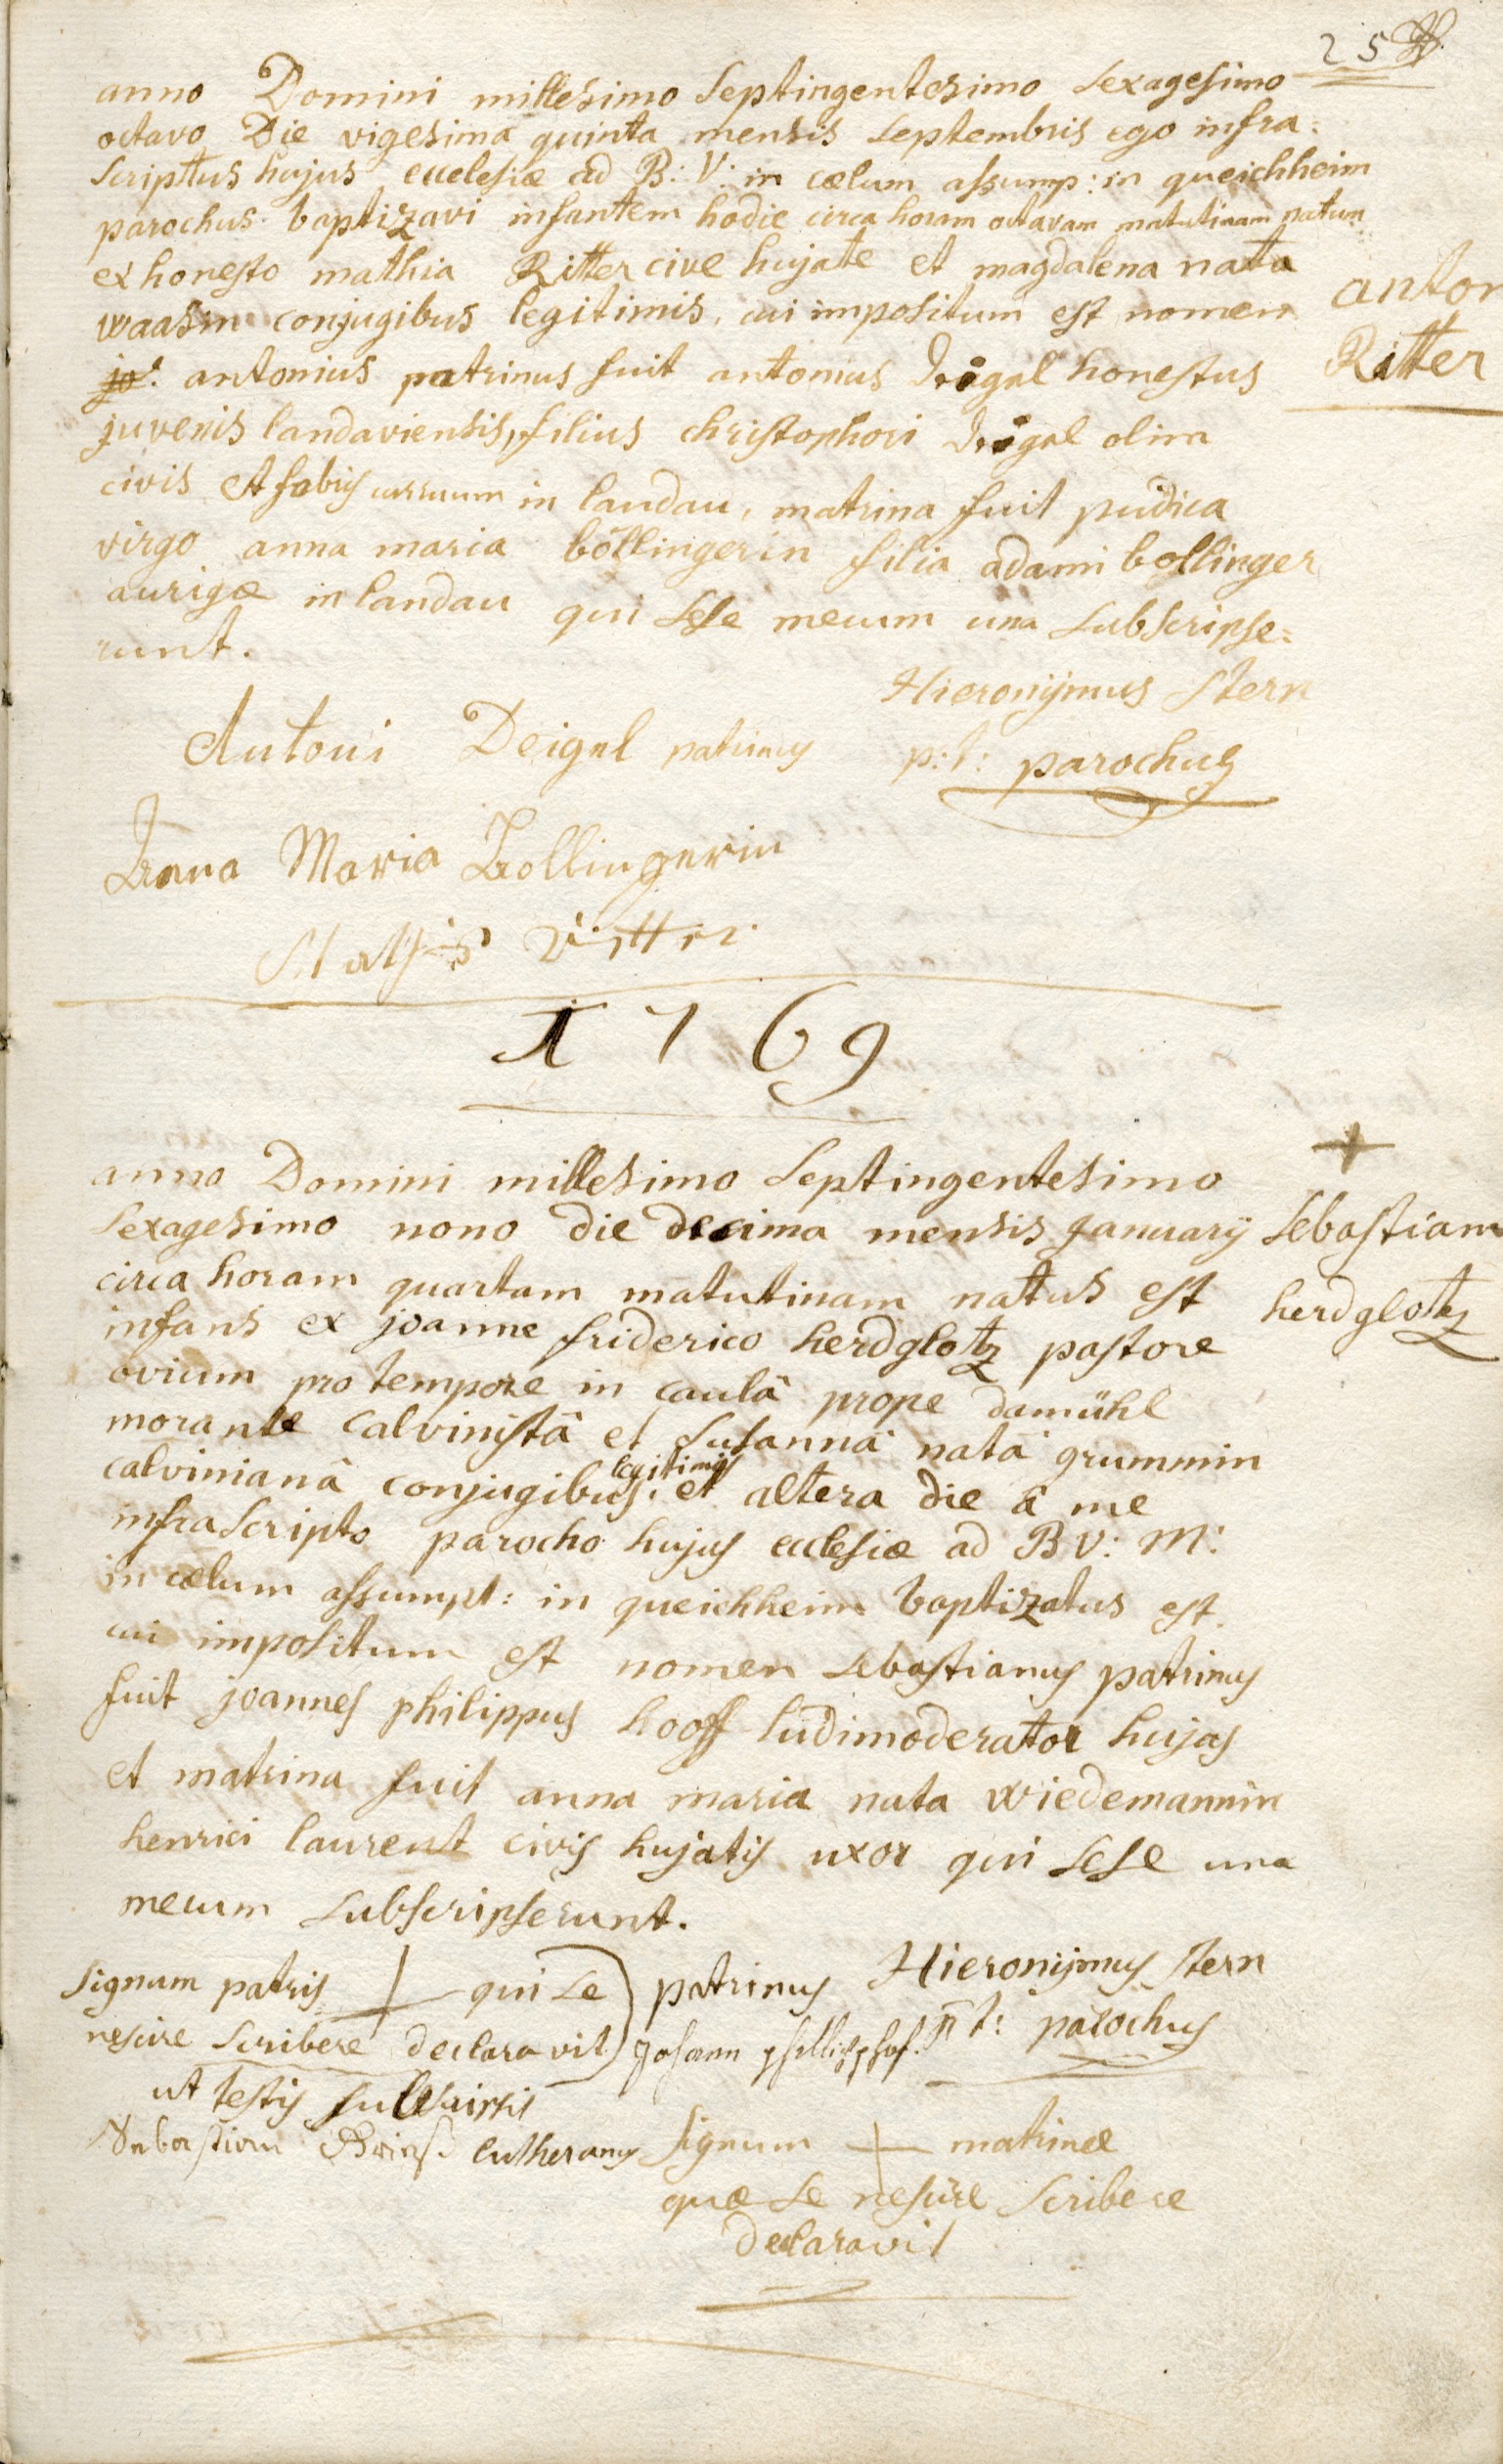 25
anno Domini millesimo Septingentesimo Sexagesimo
octavo Die vigesima quinta mensis Septembris ego infra:
Scriptus hujus ecclesiæ ad B: V: in cælum assump: in queichheim
parochus baptizavi infantem hodie circa horam octavam matutinam natum
ex honesto mathia Ritter cive hujate et magdalena nata
waasin conjugibus legitimis, cui impositum est nomen
jo: antonius patrinus fuit antonius honestus
juvenis landaviensis, filius christophori olim
civis et fabris curruum in landau, matrina fuit pudica
virgo anna maria böllingerin filia adami bollinger
aurigæ in landau qui sese mecum una Subscripse=
runt.
anton
Ritter
Hieronÿmus Stern
p: t: parochus
Antoni Deigel patrinus
Anna Maria Bollingerin
Mathis Ritter
1769
anno Domini millesimo Septingentesimo
Sexagesimo nono die decima mensis January
circa horam quartam matutinam natus est
infans ex joanne friderico herdglotz pastore
ovium pro tempore in caulâ prope damühl
morante Calvinistâ et Susannâ natâ grummin
calvinianâ conjugibus legitimis, et altera die â me
infraScripto parocho hujus ecclesiæ ad B V: M:
in cælum assumpt: in queichheim baptizatus est.
cui impositum est nomen Sebastianus patrinus
fuit joannes philippus hooff ludimoderator hujas
et matrina fuit anna maria nata wiedemannin
henrici laurent civis hujatis uxor qui sese una
mecum Subscripserunt.
+
Sebastiam
herdglotz
Signum patris + qui se
nescire Scribere declaravit
ut testis
lutheranus
patrinus
Johann
Hieronijmus Stern
p t: parochus
Signum + matrinæ
quæ se nescire Scribere
declaravit